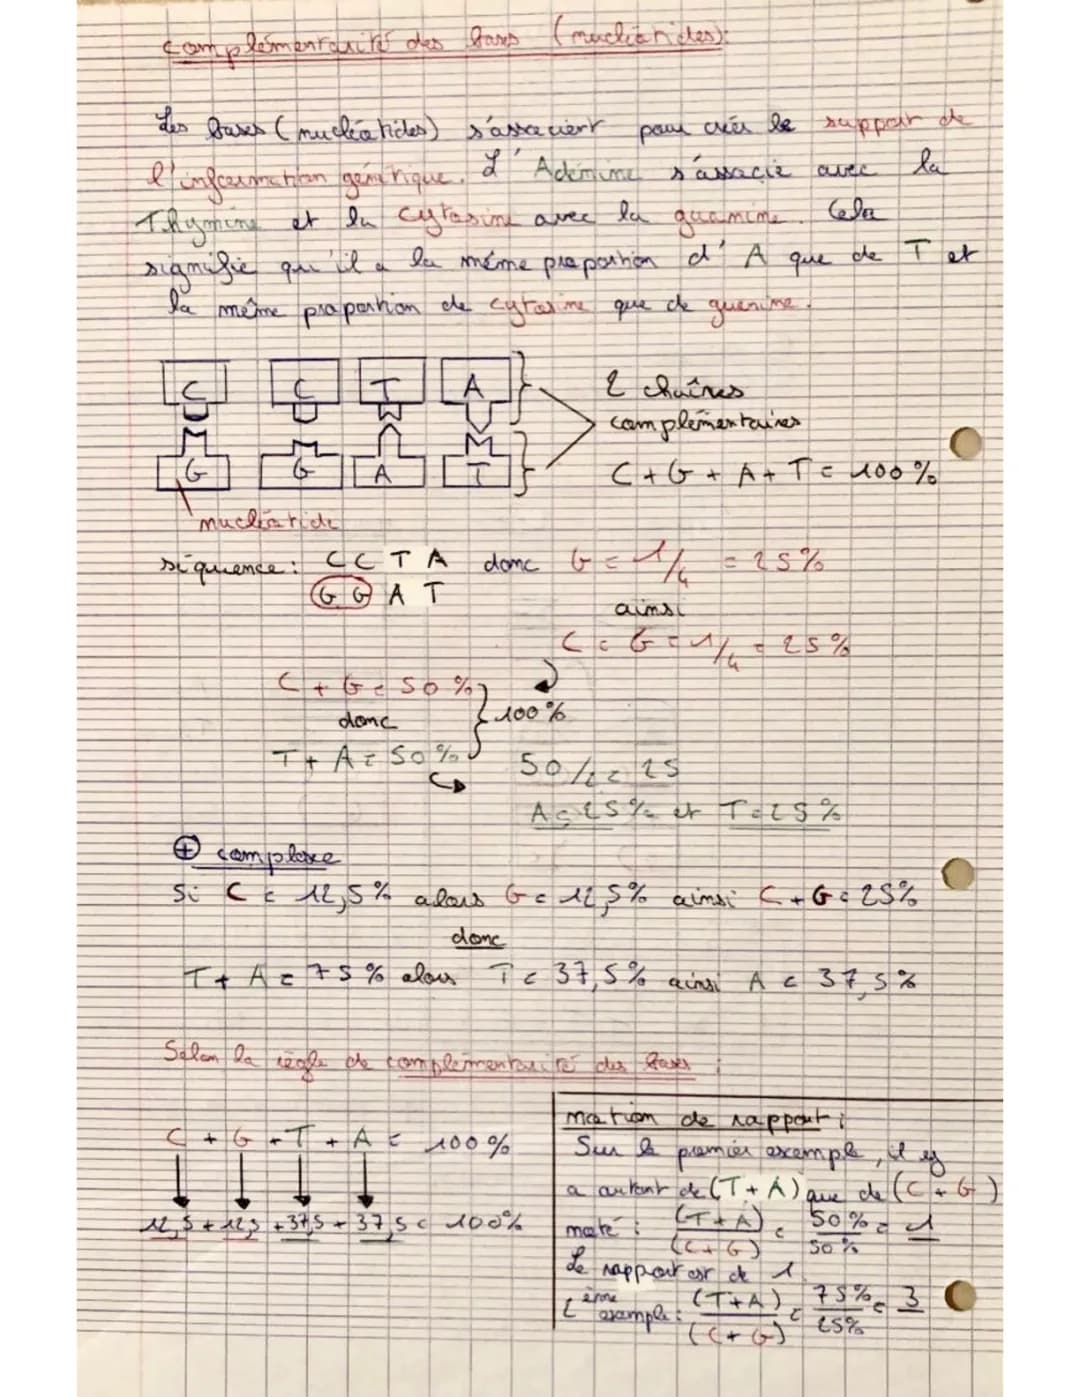 Complémentarité des bases (nucléotides):
Les bases (nucléotides) s'associent pour créer le support de
l'information génétique. L'Adénine s'associe avec la
Thymine et la cytosine avec la guanine. Cela
signifie qu'il a la même proportion d'A que de T et
la même proportion de cytosine que de guanine.
C C T A
G G A T
2 chaînes
complémentaires
C + G + A + T = 100 %
nucléotide
séquence : C C T A donc G = 1/4 = 25 %
G G A T
ainsi
C = G = 1/4 = 25 %
C + G = 50 %
donc
100 %
T + A = 50 %
50/2 = 25
A = 25 % et T = 25 %
⊕ complexe
Si C = 12,5 % alors G = 12,5 % ainsi C + G = 25 %
donc
T + A = 75 % alors T = 37,5 % ainsi A = 37,5 %
Selon la règle de complémentarité des bases :
C + G + T + A = 100 %
12,5 + 12,5 + 37,5 + 37,5 = 100 %
notion de rapport :
Sur le premier exemple, il y
a autant de (T + A) que de (C + G)
noté : (T + A) / (C + G) = 50 % / 50 % = 1
Le rapport est de 1
2ème exemple : (T + A) / (C + G) = 75 % / 25 % = 3